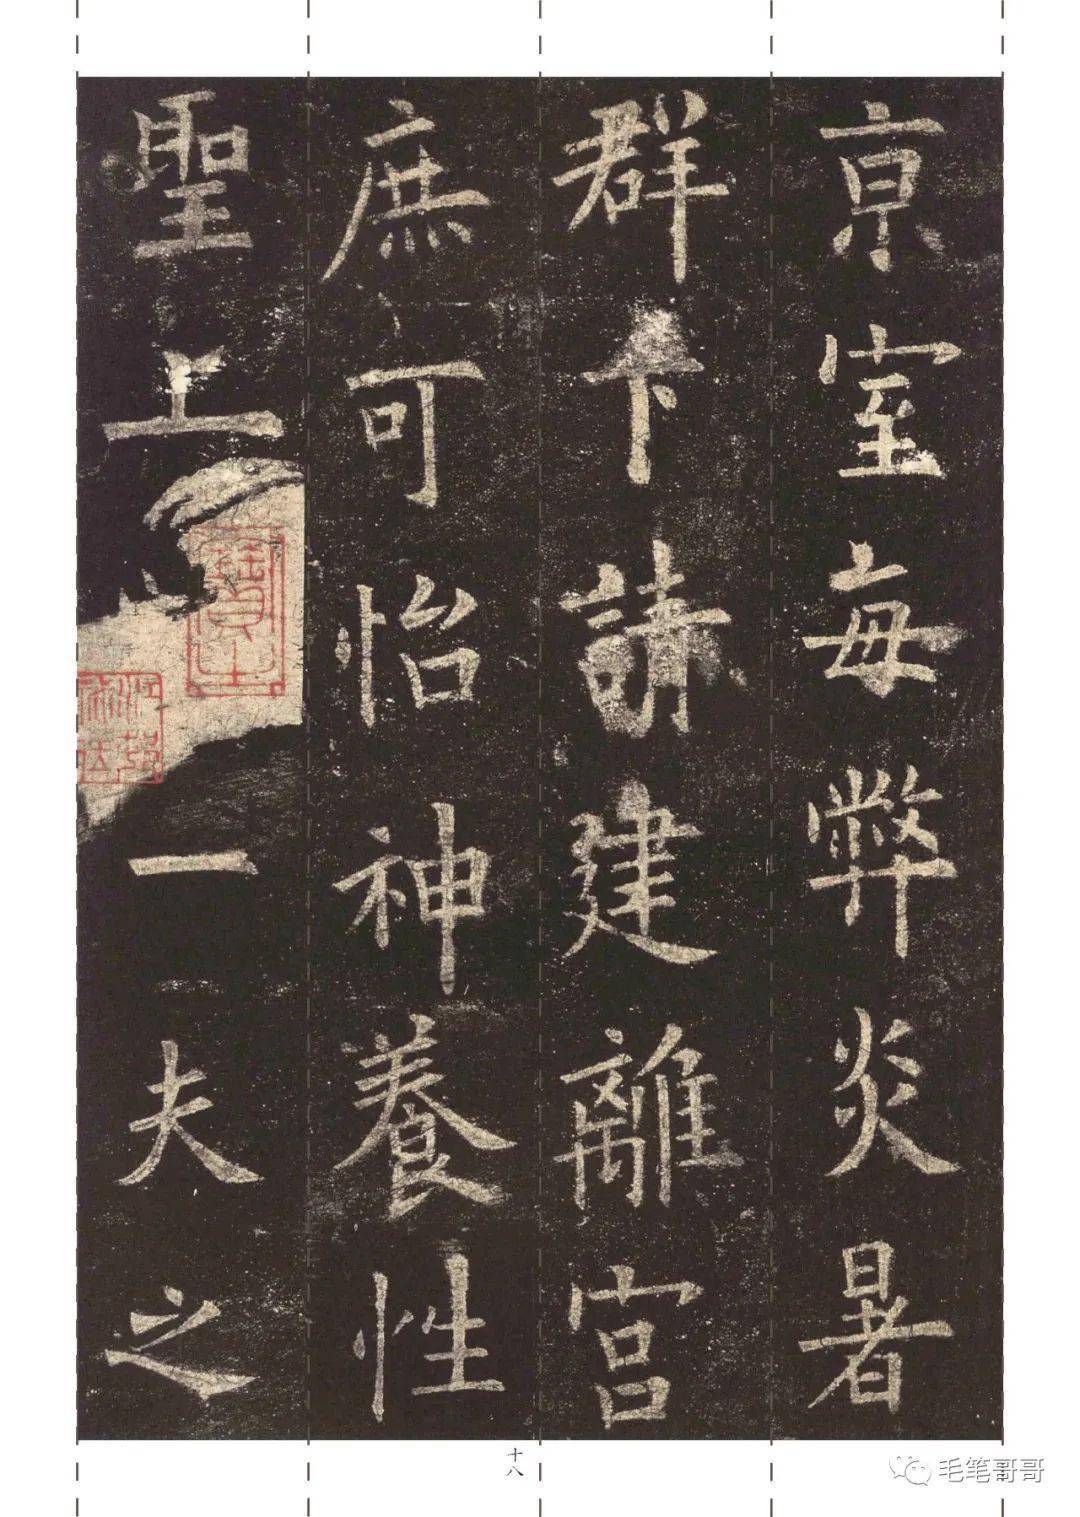 京室每弊炎暑
群下請建離宮
庶可怡神養性
聖上
一夫之
十八
毛笔哥哥